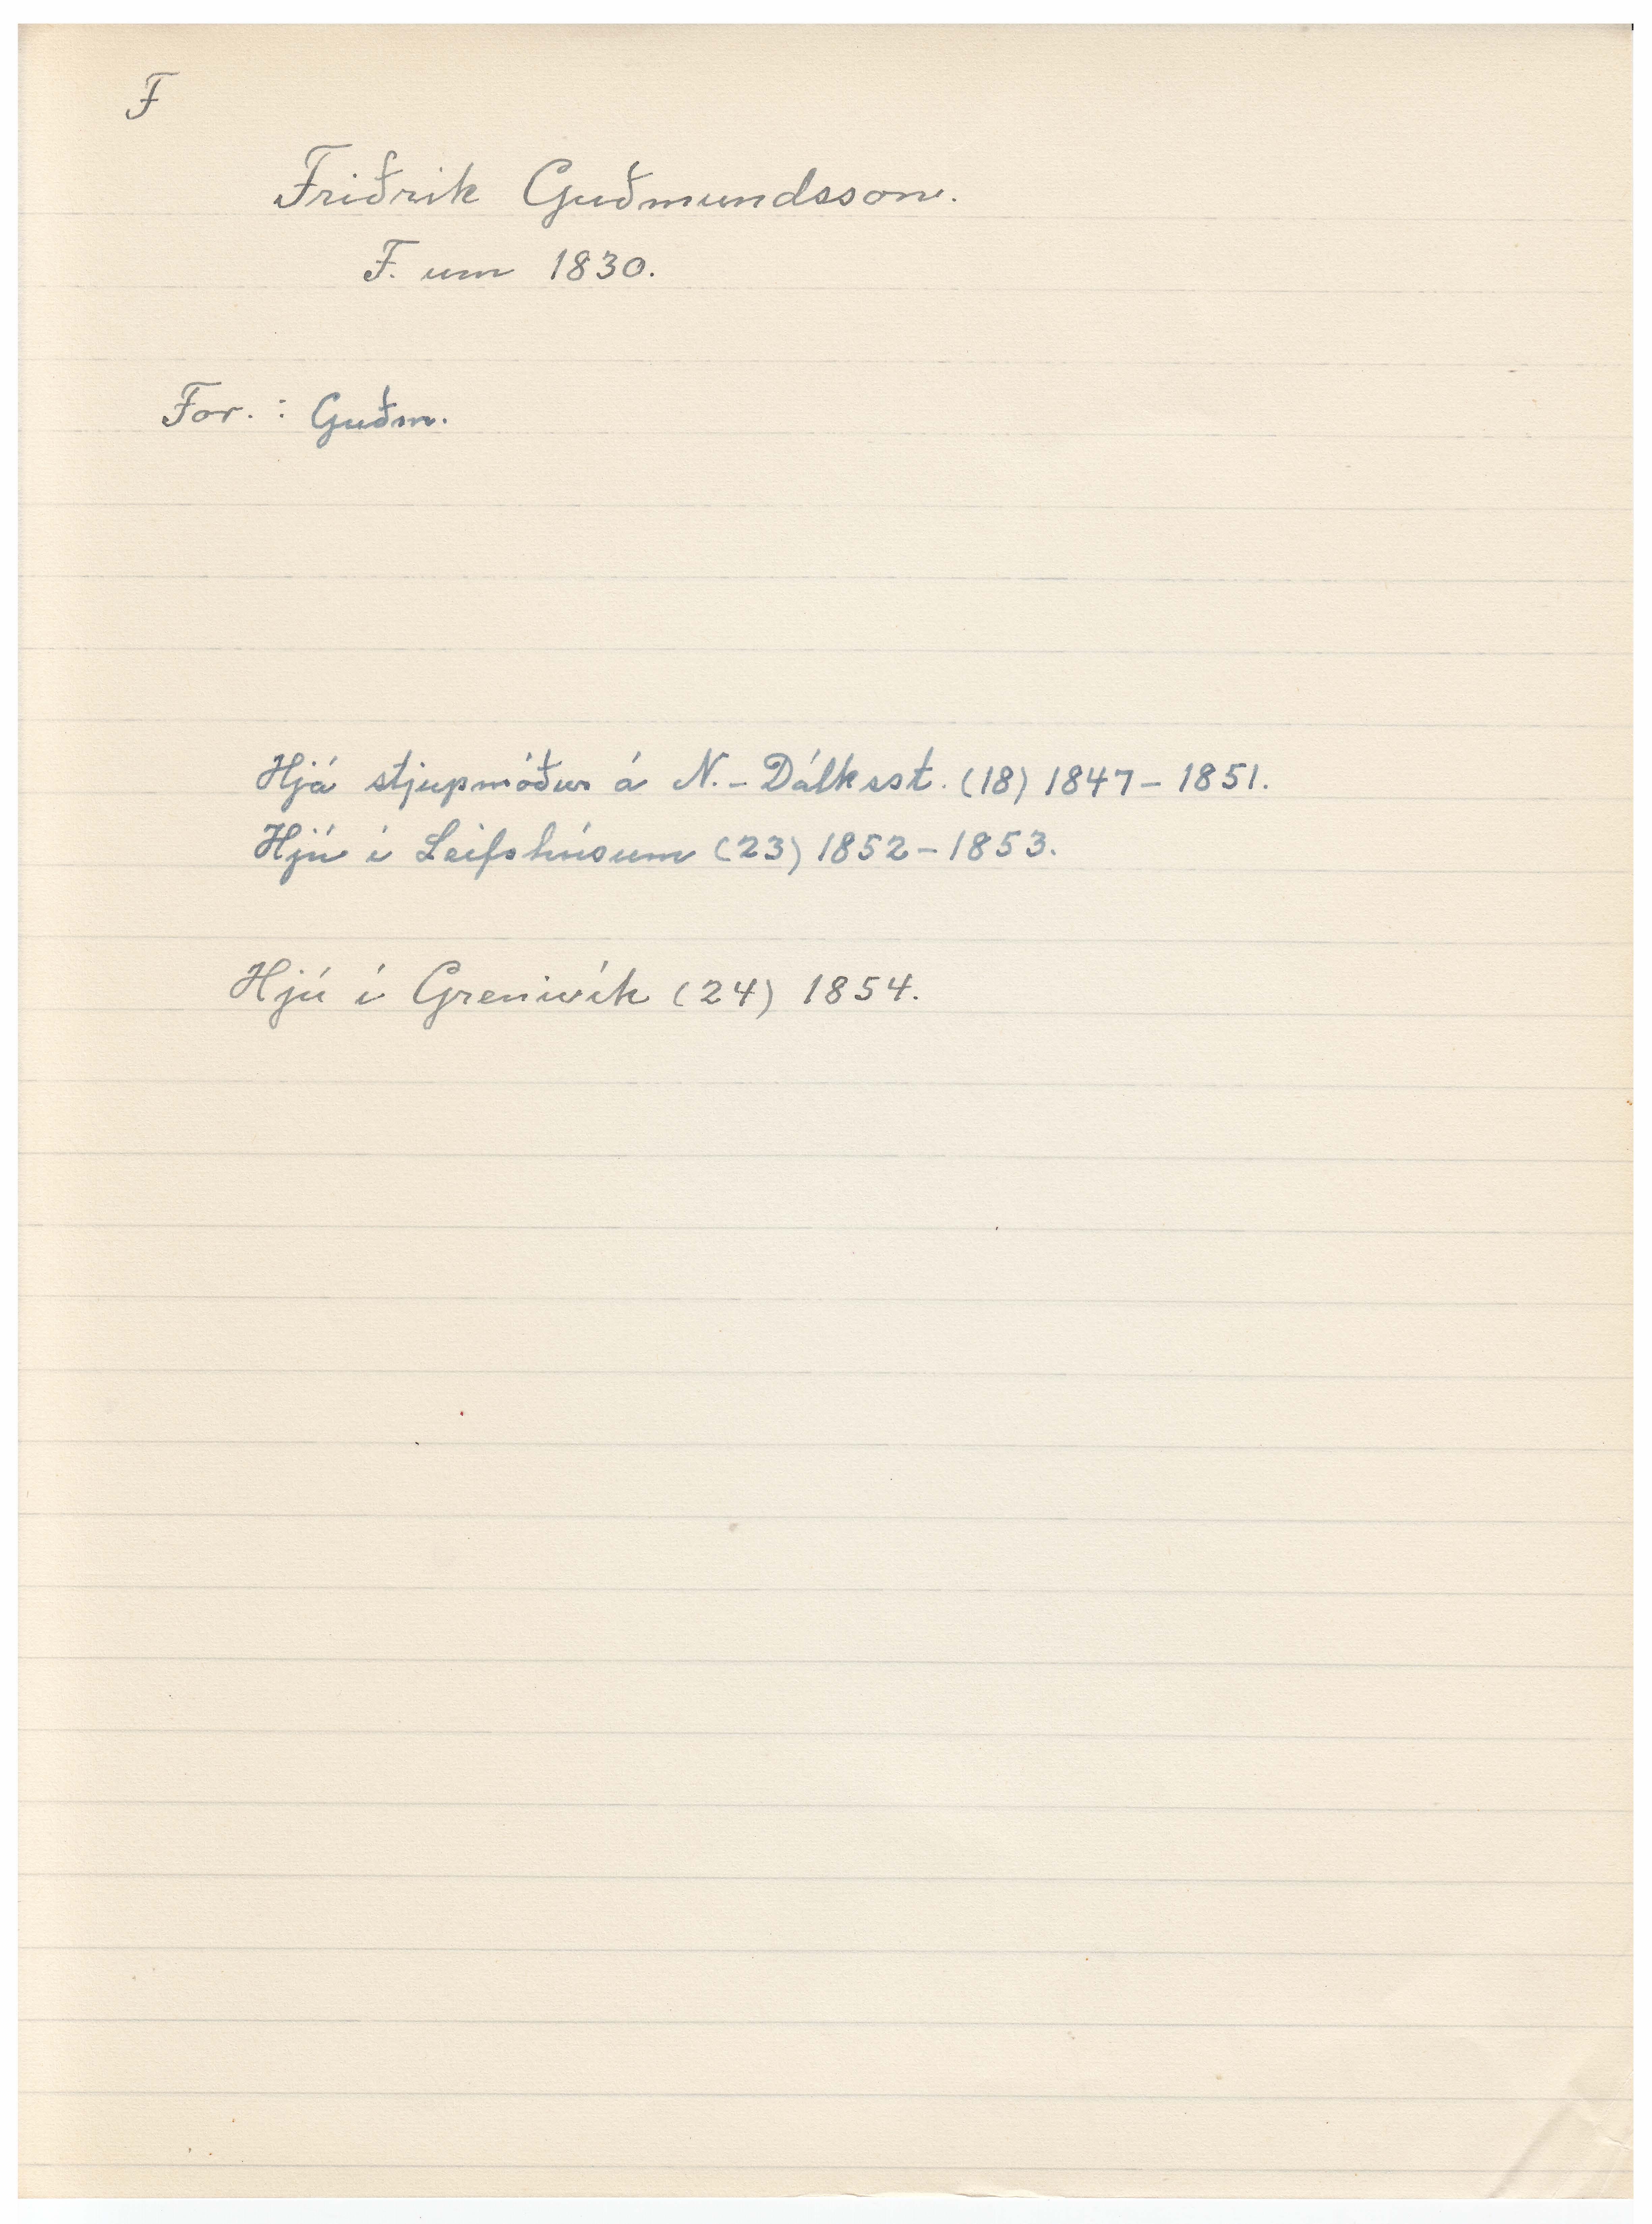 F
Friðrik Guðmundsson.
F. um 1830.
For. : Guðm.
Hjá stjupmóður á N.-Dálksst. (18) 1847-1851.
Hjú í Leifshúsum (23) 1852-1853.
Hjú í Grenivík (24) 1854.